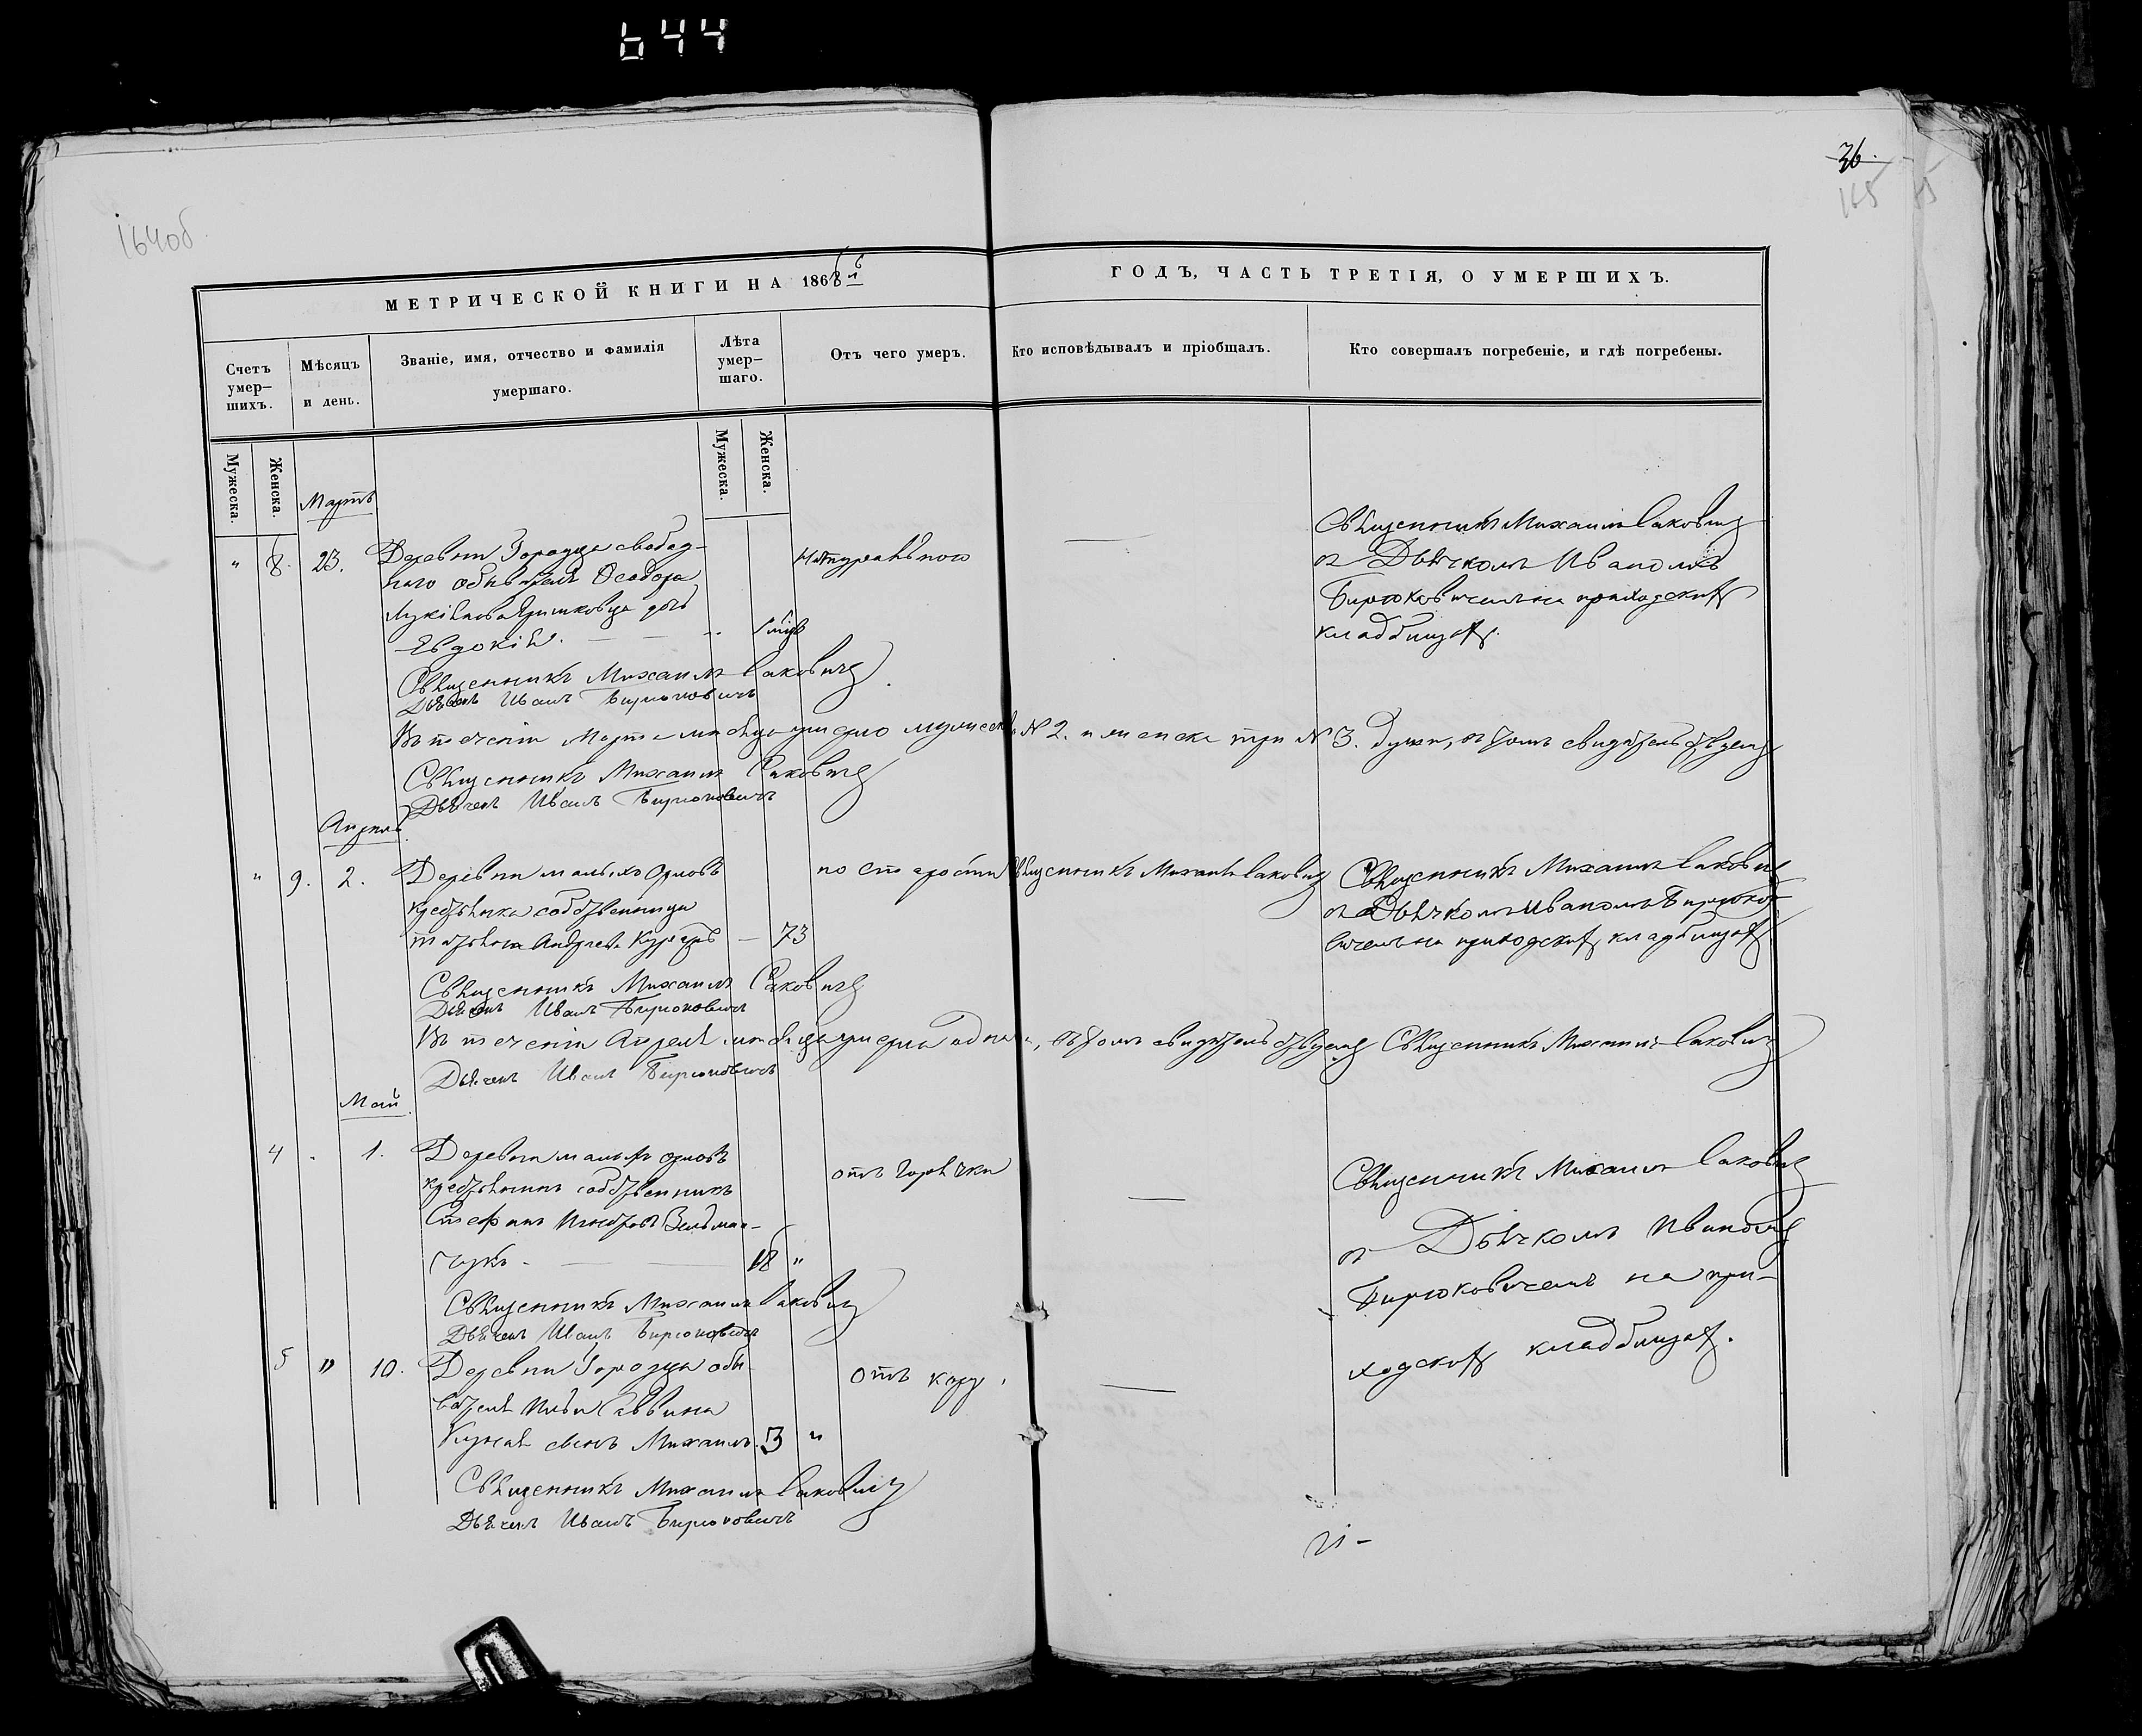 644
36.
165
164об.
МЕТРИЧЕСКОЙ КНИГИ НА 1866 ГОДЪ, ЧАСТЬ ТРЕТІЯ, О УМЕРШИХЪ.
Счетъ умер–шихъ.
Мѣсяцъ и день.
Званіе, имя, отчество и фамилія умершаго.
Лѣта умер–шаго.
Отъ чего умеръ.
Кто исповѣдывалъ и пріобщалъ.
Кто совершалъ погребеніе, и гдѣ погребены.
Мужеска.
Женска.
Мужеска.
Женска.
Мартъ
" 8. 23. Деревни Городца свобод- Натурального — Священникъ Михаилъ Саковичъ
наго обывателя Ѳеодора съ Дьячкомъ Иваномъ
дочь Бирюковичемъ на приходскомъ
Евдокія. кладбищѣ.
Священникъ Михаилъ Саковичъ
Дьячекъ Иванъ Бирюковичъ
Въ теченіи Марта мѣсяца умерло мужеска № 2. и женска три № 3. души, въ томъ свидѣтельствуемъ
Священникъ Михаилъ Саковичъ
Дьячекъ Иванъ Бирюковичъ
Апрель
" 9. 2. Деревни Малыхъ Орловъ по старости Священникъ Михаилъ Саковичъ Священникъ Михаилъ Саковичъ
крестьянка собственница съ Дьячкомъ Иваномъ Бирюко-
Татьяна Андреева — 73 вичемъ на приходскомъ кладбищѣ
Священникъ Михаилъ Саковичъ
Дьячекъ Иванъ Бирюковичъ
Въ теченіи Апреля мѣсяца умерла одна, въ томъ свидѣтельствуемъ Священникъ Михаилъ Саковичъ
Дьячекъ Иванъ Бирюковичъ
Май
4 . 1. Деревни Малыхъ Орловъ отъ горячки — Священникъ Михаилъ Саковичъ
крестьянинъ собственникъ съ Дьячкомъ Иваномъ
Стефанъ Бирюковичемъ на при-
18 " ходскомъ кладбищѣ.
Священникъ Михаилъ Саковичъ
Дьячекъ Иванъ Бирюковичъ
5 " 10. Деревни Городца обы- отъ кору. —
вателя Ильи Саввина
сынъ Михаилъ. 3 "
Священникъ Михаилъ Саковичъ
Дьячекъ Иванъ Бирюковичъ